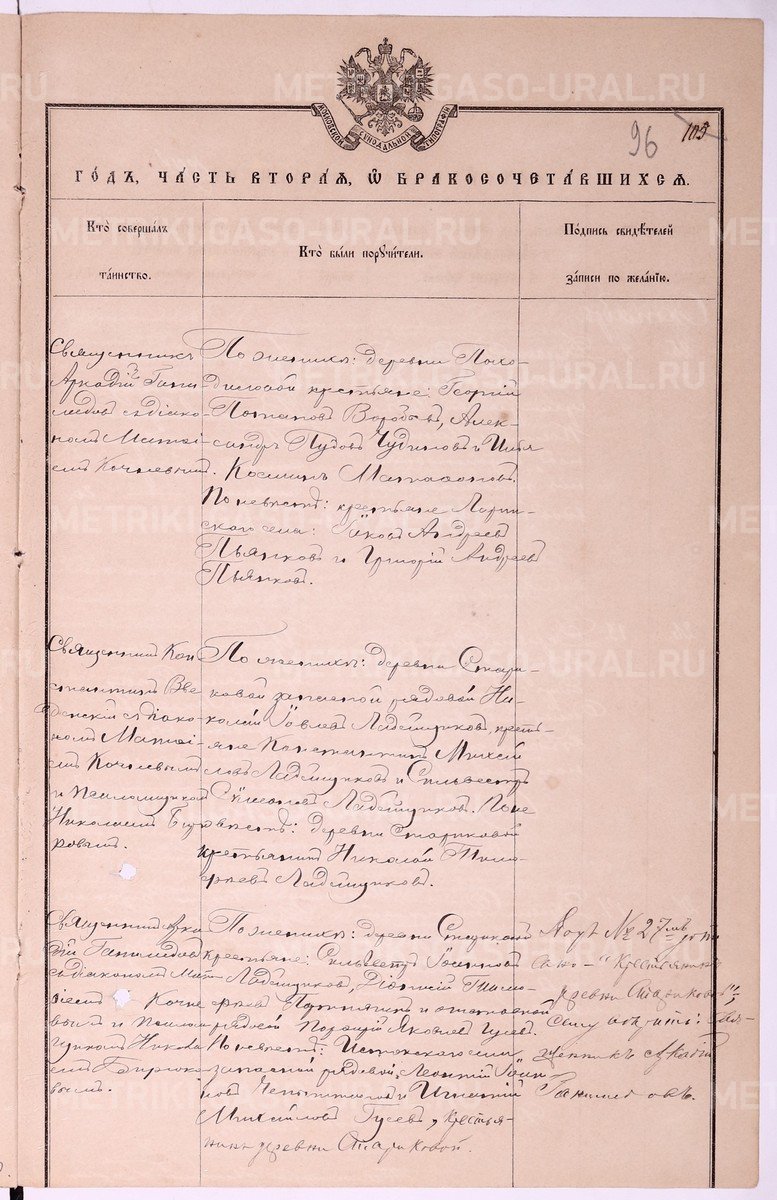 METRIKI.GASO-URAL.RU
МОСКОВСКОЙ СѴНОДАЛЬНОЙ ТИПОГРАФІИ
96 105
ГОДЪ, ЧАСТЬ ВТОРАЯ, Ѡ БРАКОСОЧЕТАВШИХСЯ.
Кто совершалъ
таинство.
Кто были поручители.
Подпись свидѣтелей
записи по желанію.
Священникъ
Аркадій Гани
медовъ съ діако-
номъ Матѳі-
емъ Кочневымъ.
По женихѣ: деревни Похо-
диловой крестьяне: Георгій
Потаповъ Воробьевъ, Алек-
сандръ Пудовъ Чудиновъ и Илья
Косминъ Матафоновъ.
По невѣстѣ: крестьяне
скаго села: Іаковъ Андреевъ
Пьянковъ и Григорій Андреевъ
Пьянковъ.
Священникъ Кон
стантинъ Вве
денскій съ діако-
номъ Матѳі-
емъ Кочневымъ
и псаломщикомъ
Николаемъ Бирю
ковымъ.
По женихѣ: деревни Стари-
ковой запасной рядовой Ни-
колай Іовлевъ Ладейщиковъ, кресть-
яне Константинъ Михай
ловъ Ладейщиковъ и Сильвестръ
Симеоновъ Ладейщиковъ. По не
вѣстѣ: деревни Стариковой
крестьянинъ Николай Тимо-
феевъ Ладейщиковъ.
Священникъ Арка
дій Ганимедовъ
съ діакономъ Мат
ѳіемъ Кочне
вымъ и псалом
щикомъ Никола
емъ Бирюко
вымъ.
По женихѣ: деревни Стариковой
крестьяне: Сильвестръ
Ладейщиковъ, Діонисій Тимо-
феевъ и запасной
рядовой Порфирій Яковлевъ Гусевъ.
По невѣстѣ: Истокскаго села
запасной рядовой, Леонтій Іоан-
новъ и Игнатій
Михайловъ Гусевъ, крестья-
нинъ деревни Стариковой.
№ 27
"крестьянинъ
деревни Стариковой"
Свя-
щенникъ Аркадій
Ганимедовъ.